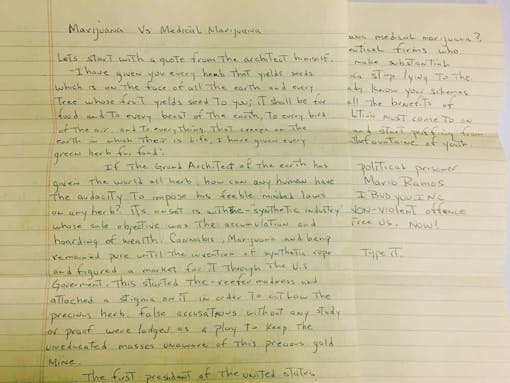 Marijuana Vs Medical Marijuana
Lets start with a quote from the architect himself.
"I have given you every herb that yields seeds
which is on the face of all the earth and every
Tree whose fruit yields seed to you; it shall be for
food and To every beast of the earth, To every bird
of the air, and To every Thing that creeps on the
earth in which Their is life, I have given every
green herb for food."
If The Grand Architect of the earth has
given the world all herb, how can any human have
the audacity To impose his feeble minded laws
on any herb? Its onset is with the synthetic industry
whose sole objective was the accumulation and
hoarding of wealth. Cannabis, Marijuana and hemp
remained pure until the invention of synthetic rope
and figured a market for it through the U.S
Goverment. This started the reefer madness and
attached a stigma on it in order To outlaw the
precious herb. False accusations without any study
or proof were lodged as a ploy to keep the
uneducated masses unaware of this precious gold
Mine.
The first president of the united states
medical marijuana?
firms who
make substantial
stop lying to the
Know your schemes
all the benefits of
must come to an
and start profiting from
fountaine of youth
political prisoner
Mario Ramos
I Bud you INC
NON-violent offence
Free US. NOW!
Type it.